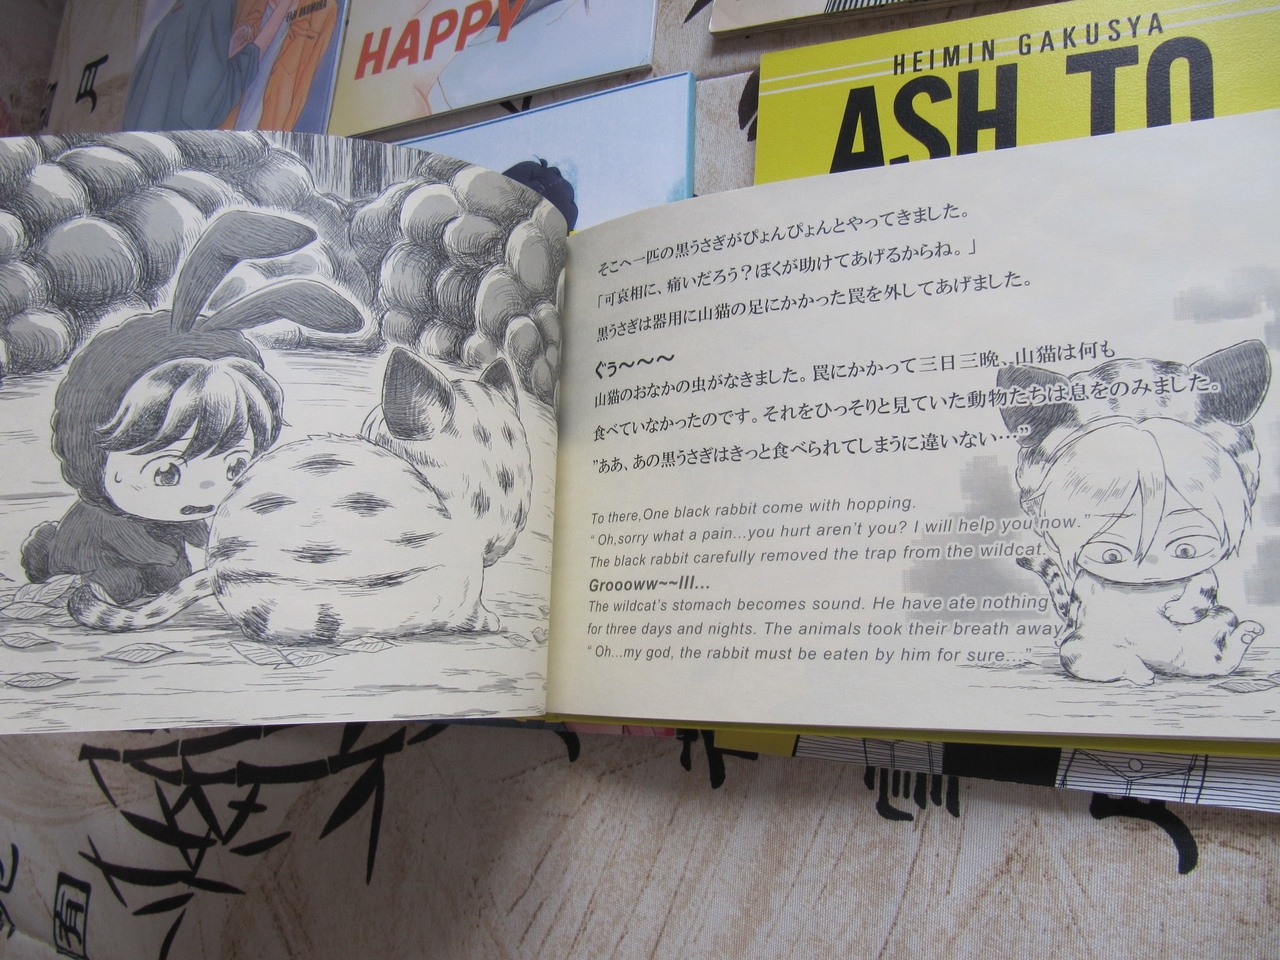 EIJI OKUMURA
HAPPY
HEIMIN GAKUSYA
ASH TO
そこへ一匹の黒うさぎがぴょんぴょんとやってきました。
「可哀相に、痛いだろう？ぼくが助けてあげるからね。」
黒うさぎは器用に山猫の足にかかった罠を外してあげました。
ぐぅ～～～～
山猫のおなかの虫がなきました。罠にかかって三日三晩、山猫は何も
食べていなかったのです。それをひっそりと見ていた動物たちは息をのみました。
"ああ、あの黒うさぎはきっと食べられてしまうに違いない…"
To there,One black rabbit come with hopping.
“ Oh,sorry what a pain…you hurt aren't you? I will help you now.”
The black rabbit carefully removed the trap from the wildcat.
Groooww~~lll…
The wildcat's stomach becomes sound. He have ate nothing
for three days and nights. The animals took their breath away
“ Oh…my god, the rabbit must be eaten by him for sure…”